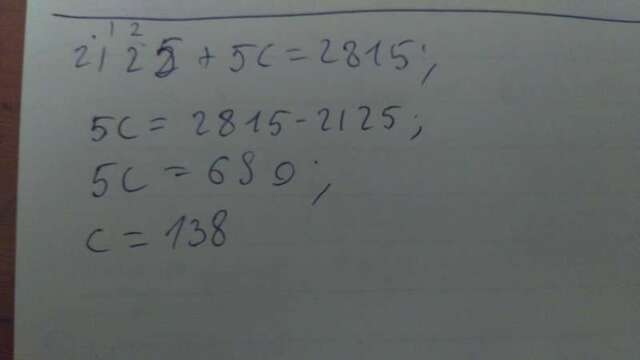 2125 + 5c = 2815;
5c = 2815 - 2125;
5c = 690;
c = 138